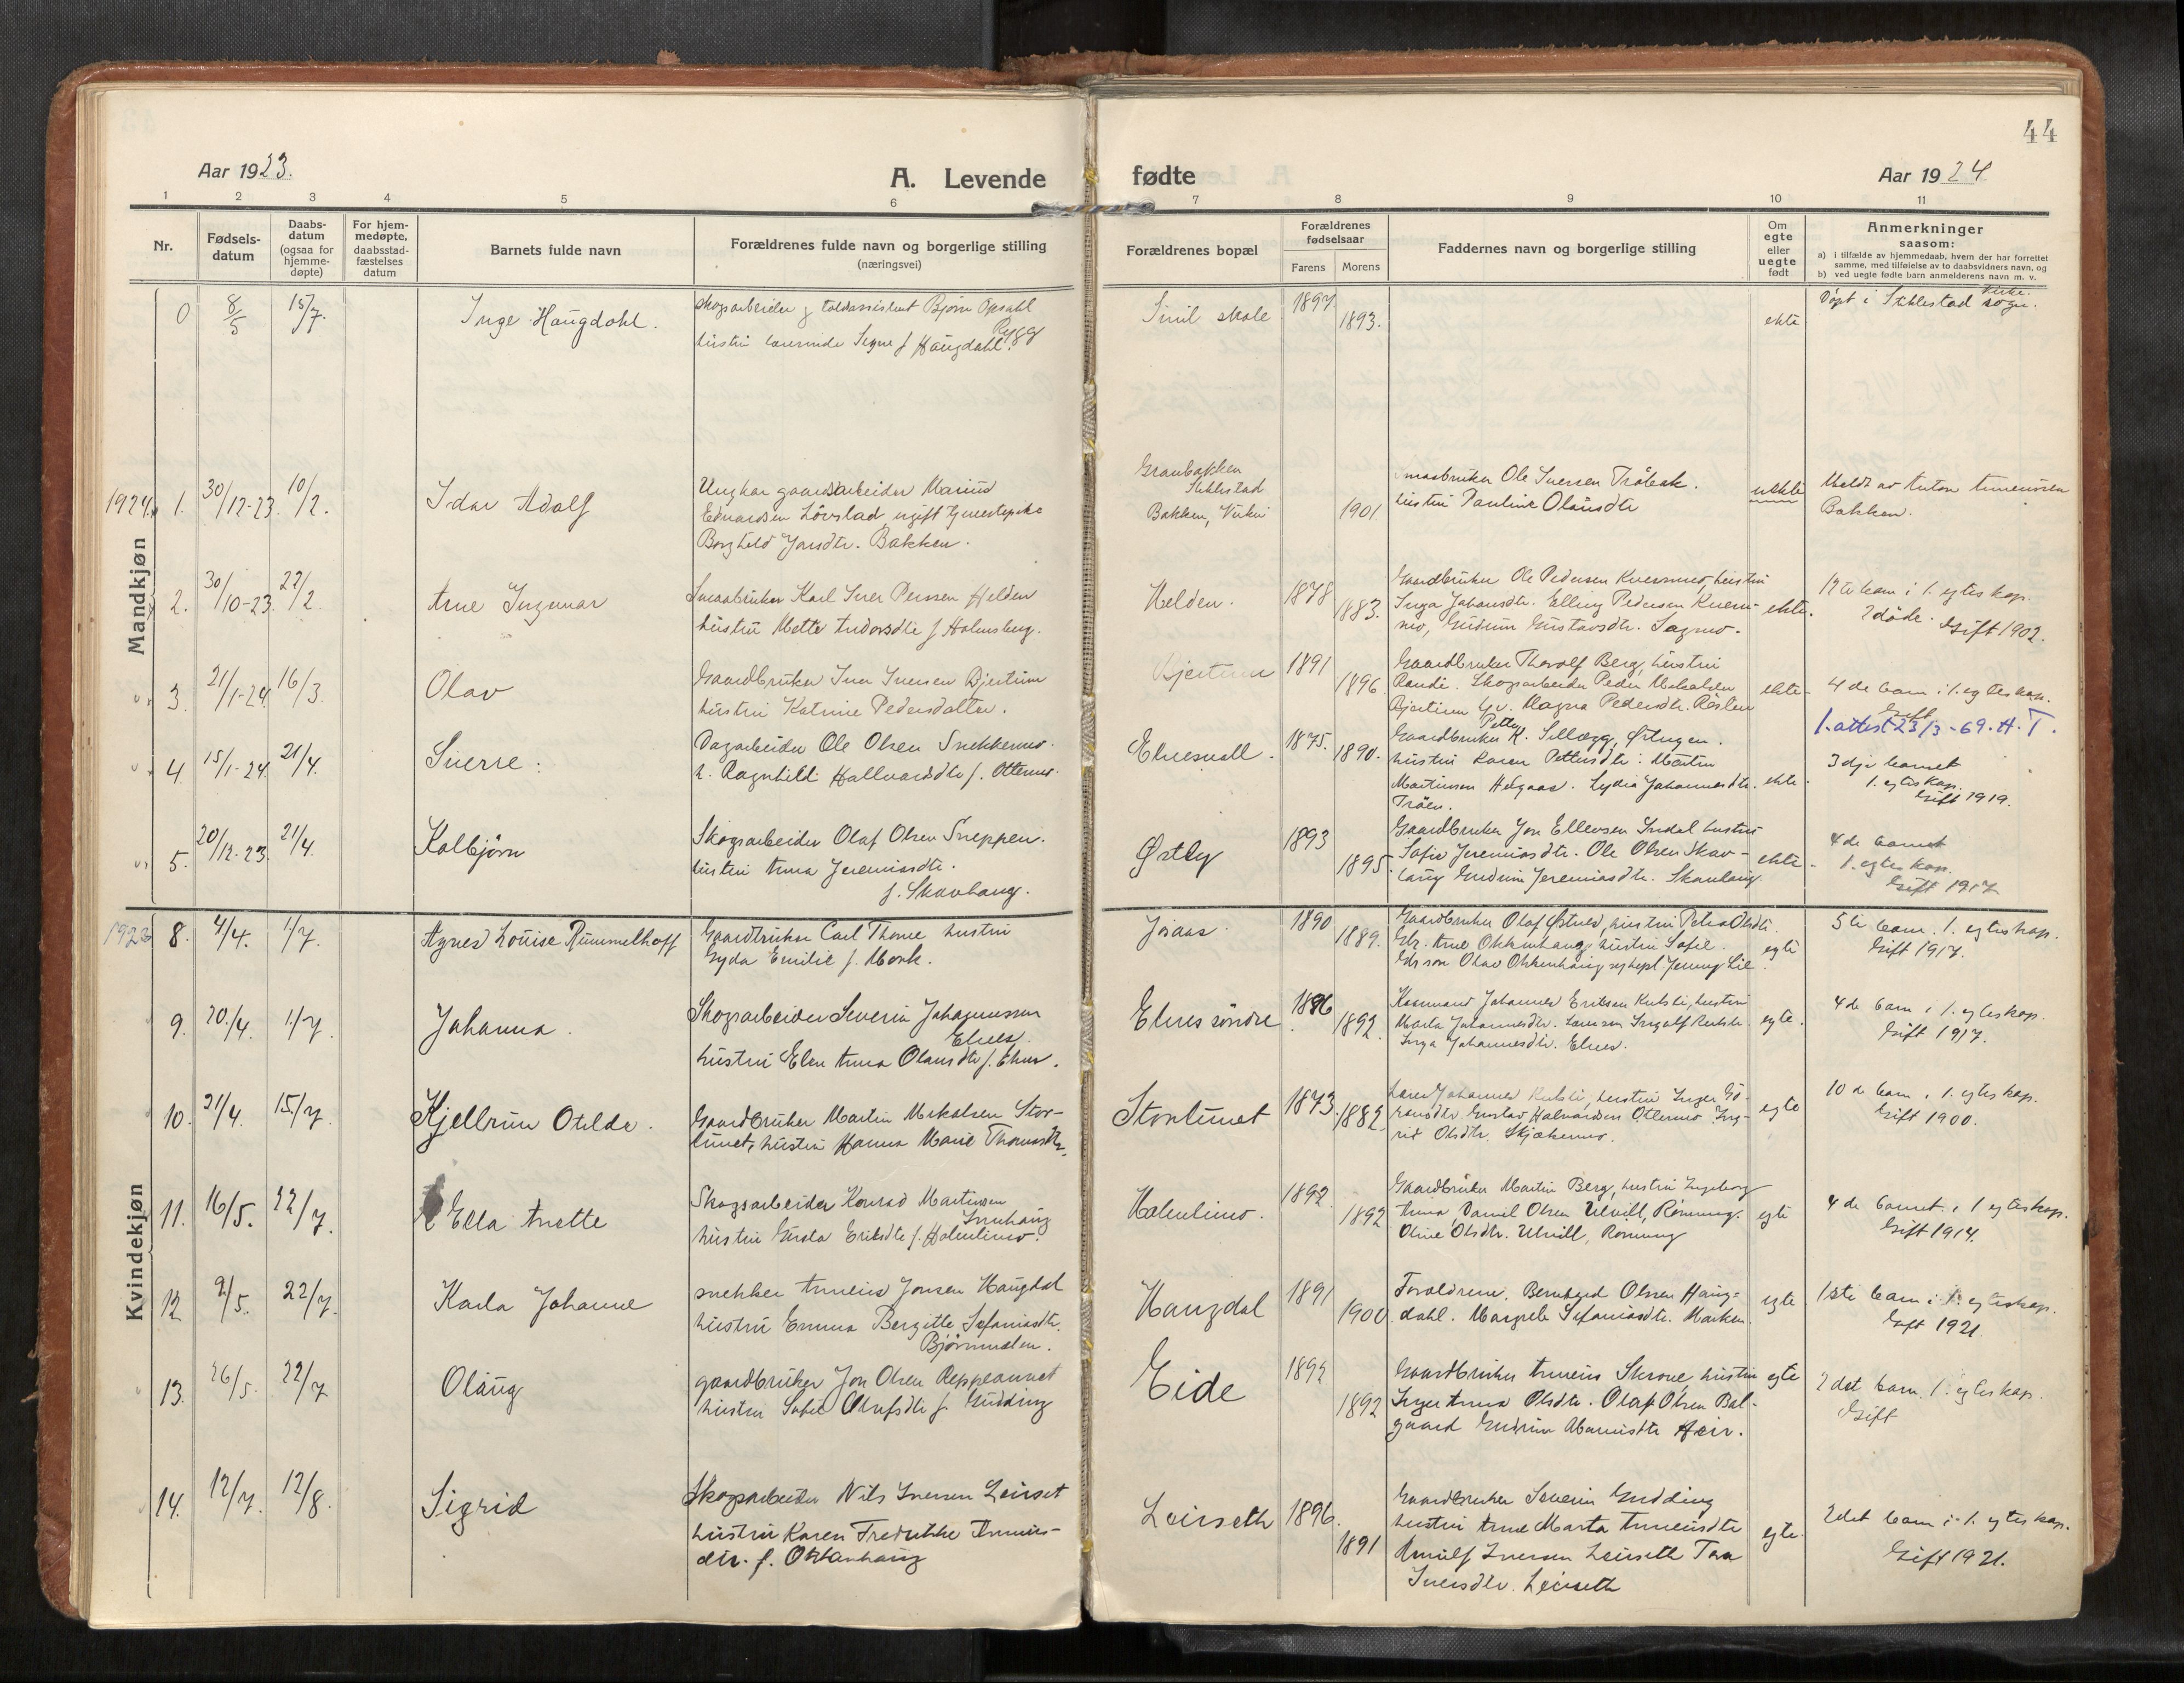 44
Aar 1923.
A. Levende fødte
Aar 1924
1 2 3 4 5 6 7 8 9 10 11
Nr.
Fødsels-
datum
Daabs-
datum
(ogsaa for
hjemme-
døpte)
For hjem-
medøpte,
daabsstad-
fæstelses
datum
Barnets fulde navn
Forældrenes fulde navn og borgerlige stilling
(næringsvei)
Forældrenes bopæl
Forældrenes
fødselsaar
Farens
Morens
Faddernes navn og borgerlige stilling
Om
egte
eller
uegte
født
Anmerkninger
saasom:
a) i tilfælde av hjemmedaab, hvem der har forrettet
samme, med tilføielse av to daabsvidners navn, og
b) ved uegte fødte barn anmelderens navn m. v.
0 8/5 15/7. Inge Haugdahl.
Skogsarbeider g toldassistent Bjørn Opsahl
Rygg
hustru lærerinde Signe f Haugdahl.
Sml skole 1897 1893.
ekte
Døpt i Stiklestad kirke-
sogn.
Mandkjøn
1924. 1. 30/12-23. 10/2. Idar Adolf
Ungkar gaardsarbeider Marius
Edvardsen Lövstad, ugift tjenestepike
Borghild Jonsdtr. Bakken.
Granbakken
Stiklestad
Bakken, 1901
Smaabruker Ole Iversen Tröbak.
hustru Pauline Olausdtr
uekte
Meldt av Anton Arneussen
Bakken.
2. 30/10-23. 22/2. Arne Ingemar
Smaabruker Karl Iver Perssen Helden
hustru Mette Andorsdtr f Holmsberg.
Helden. 1878 1883.
Gaardbruker Ole Pedersen Kvernmo, hustru
Inga Johansdtr. Elling Pedersen Kvern-
mo, Gudrun Gustavsdtr. Sagmo.
ekte.
12te barn i 1. egteskap.
2 døde. Gift 1902.
3. 21/1-24 16/3. Olav
Gaardbruker Iver Iversen Bjertum
hustru Katrine Pedersdatter.
Bjertum 1891 1896.
Gaardbruker Thorolf Berg, hustru
Randi. Skogsarbeider Peder Mikalsen
Bjertum gv. Magna Pedersdtr. Röslen
ekte
4de barn i 1. egteskap.
Gift
1. attest 23/3-69. H. T.
4. 15/1-24. 21/4. Sverre.
Dagarbeider Ole Olsen Snekkermo.
h. Ragnhild Hallvardsdtr f. Ottermo.
Elnesvald. 1875. 1890.
Gaardbruker K. Petter Sellægg, Ørtugen.
hustru Karen Pettersdtr. Martin
Martinsen Helgaas. Lydia Johannesdtr.
Tröen.
ekte.
3dje barnet
1. egteskap.
Gift 1919.
5. 20/12-23. 21/4. Kolbjørn
Skogsarbeider Olaf Olsen Sneppen.
hustru Anna Jeremiasdtr.
f. Skavhaug.
Østby 1893 1895.
Gaardbruker Jon Ellevsen Indal hustru
Sofie Jeremiasdtr. Ole Olsen Skav-
haug Gudrun Jeremiasdtr. Skavhaug.
ekte
4de barnet
1. egteskap.
Gift 1917
Kvindekjøn
1923 8. 4/4. 1/7. Agnes Louise Rummelhoff
Gaardbruker Carl Thorne hustru
Gyda Emilie f. Monk.
Jøsaas. 1890 1889.
Gaardbruker Olaf Østvold, hustru Petra Olsdtr.
Gbr. Arne Okkenhaug, hustru Sofie.
Gbr søn Olav Okkenhaug sykepl. Jenny Lie
egte
5te barn. 1. egteskap.
Gift 1917.
9. 20./4. 1/7. Johanna.
Skogsarbeider Severin Johannessen
Elnes.
hustru Elen Anna Olausdtr f. Elnes.
Elnes söndre 1896. 1892.
Kaarmand Johannes Eriksen Kulsli, hustru
Marta Johannesdtr. Ingolf
Inga Johannesdtr. Elnes.
egte.
4de barn i 1. egteskap.
Gift 1917.
10. 21/4. 15./7. Kjellrun Otilde.
Gaardbruker Martin Mikalsen Stor-
lunet, hustru Hanna Marie Thomasdtr.
Storlunet 1873. 1882.
Lærer Johannes Kulsli, hustru Inger Gö-
ransdtr Gustav Halvardsen Ottermo Ing-
rid Olsdtr. Skjækermo.
egte
10de barn, 1. egteskap.
Gift 1900.
11. 16/5. 22/7. Ella Anette
Skogsarbeider Konrad Martinsen
Innhaug
hustru Gusta Eriksdtr f. Holmlimo.
Holmlimo. 1892. 1892
Gaardbruker Martin Berg, hustru Ingeborg
Anna, Daniel Olsen Ulvill, Rømung.
Oline Olsdtr. Ulvill, Rømung
egte
4de barnet. i 1 egteskap.
Gift 1914.
12 9/5. 22/7. Karla Johanne
snekker Arneus Jonsen Haugdal
hustru Emma Bergitte Sefaniasdtr.
Bjørnmelen.
Haugdal 1891 1900
Foreldrene. Bernhard Olsen Haug-
dahl. Margrete Sefaniasdtr. Marken.
egte
1ste barn i 1. egteskap.
Gift 1921.
13. 26/5. 22/7 Olaug
gaardbruker Jon Olsen Reppeaunet
hustru Sofie Olufsdtr f. Gudding
Eide 1892 1892
Gaardbruker Arneus Skrove, hustru
Inger Anna Olsdtr. Olaf Olsen Bal-
gaard Gudrun Mariusdtr Heir.
egte
2det barn. 1. egteskap.
Gift
14. 12/7. 12/8. Sigrid
Skogsarbeider Nils Iversen Leirset
hustru Karen Fredrikke Arneus-
dtr. f. Okkenhaug
Leirseth 1896. 1891
Gaardbruker Severin Gudding
hustru Arne Marta Arneusdtr
Arnulf Iversen Leirseth Tora
Iversdtr. Leirseth
egte.
2det barn i 1. egteskap.
Gift 1921.